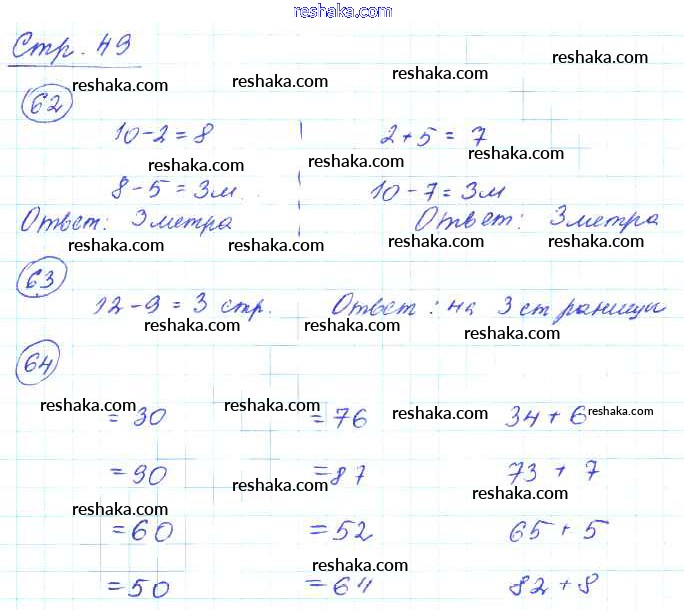 reshaka.com
Стр. 49
reshaka.com reshaka.com reshaka.com
62
10-2=8 2+5=7
reshaka.com reshaka.com reshaka.com
8-5=3м. 10-7=3м
Ответ: 3метра Ответ: 3метра
reshaka.com reshaka.com reshaka.com reshaka.com
63
12-9=3 стр. Ответ: на 3 страницы
reshaka.com reshaka.com reshaka.com
64
reshaka.com reshaka.com reshaka.com reshaka.com
=30 =76 34+6
=90 =87 73+7
reshaka.com reshaka.com reshaka.com
=60 =52 65+5
reshaka.com
=50 =64 82+8